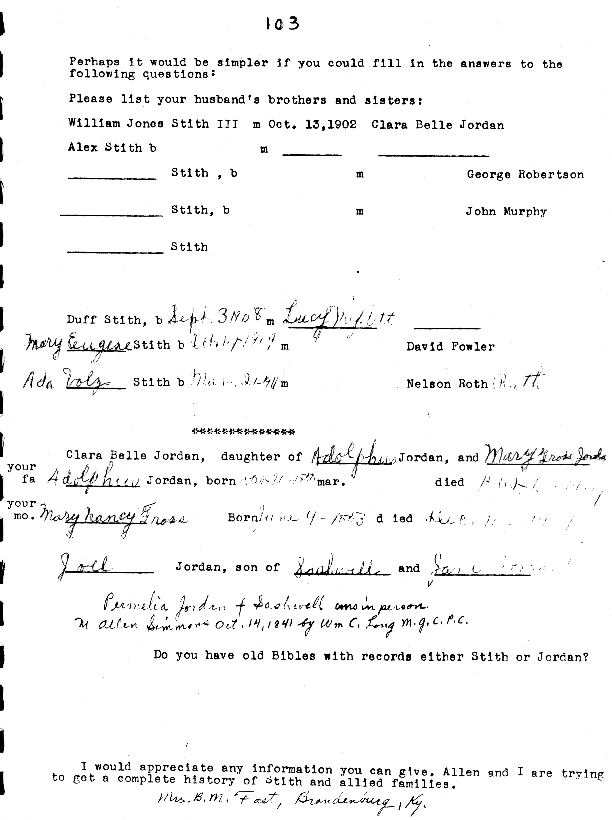 103
Perhaps it would be simpler if you could fill in the answers to the
following questions:
Please list your husband's brothers and sisters:
William Jones Stith III m Oct. 13,1902 Clara Belle Jordan
Alex Stith b m
Stith , b m George Robertson
Stith, b m John Murphy
Stith
Duff Stith, b Sept. 3 m Lucy
Mary Eugene Stith b m David Fowler
Ada Stith b m Nelson Roth
***************
Clara Belle Jordan, daughter of Adolphus Jordan, and Mary Gross Jordan
your
fa Adolphus Jordan, born mar. died
your
mo. Mary Nancy Gross Born June 4 - d ied
Joel Jordan, son of and
Permelia Jordan f in person.
M Allen Simmons Oct. 14, 1841 by Wm C. Long M. g. C. P. C.
Do you have old Bibles with records either Stith or Jordan?
I would appreciate any information you can give. Allen and I are trying
to get a complete history of Stith and allied families.
Mrs. B. M. Fast, Brandenburg, Ky.